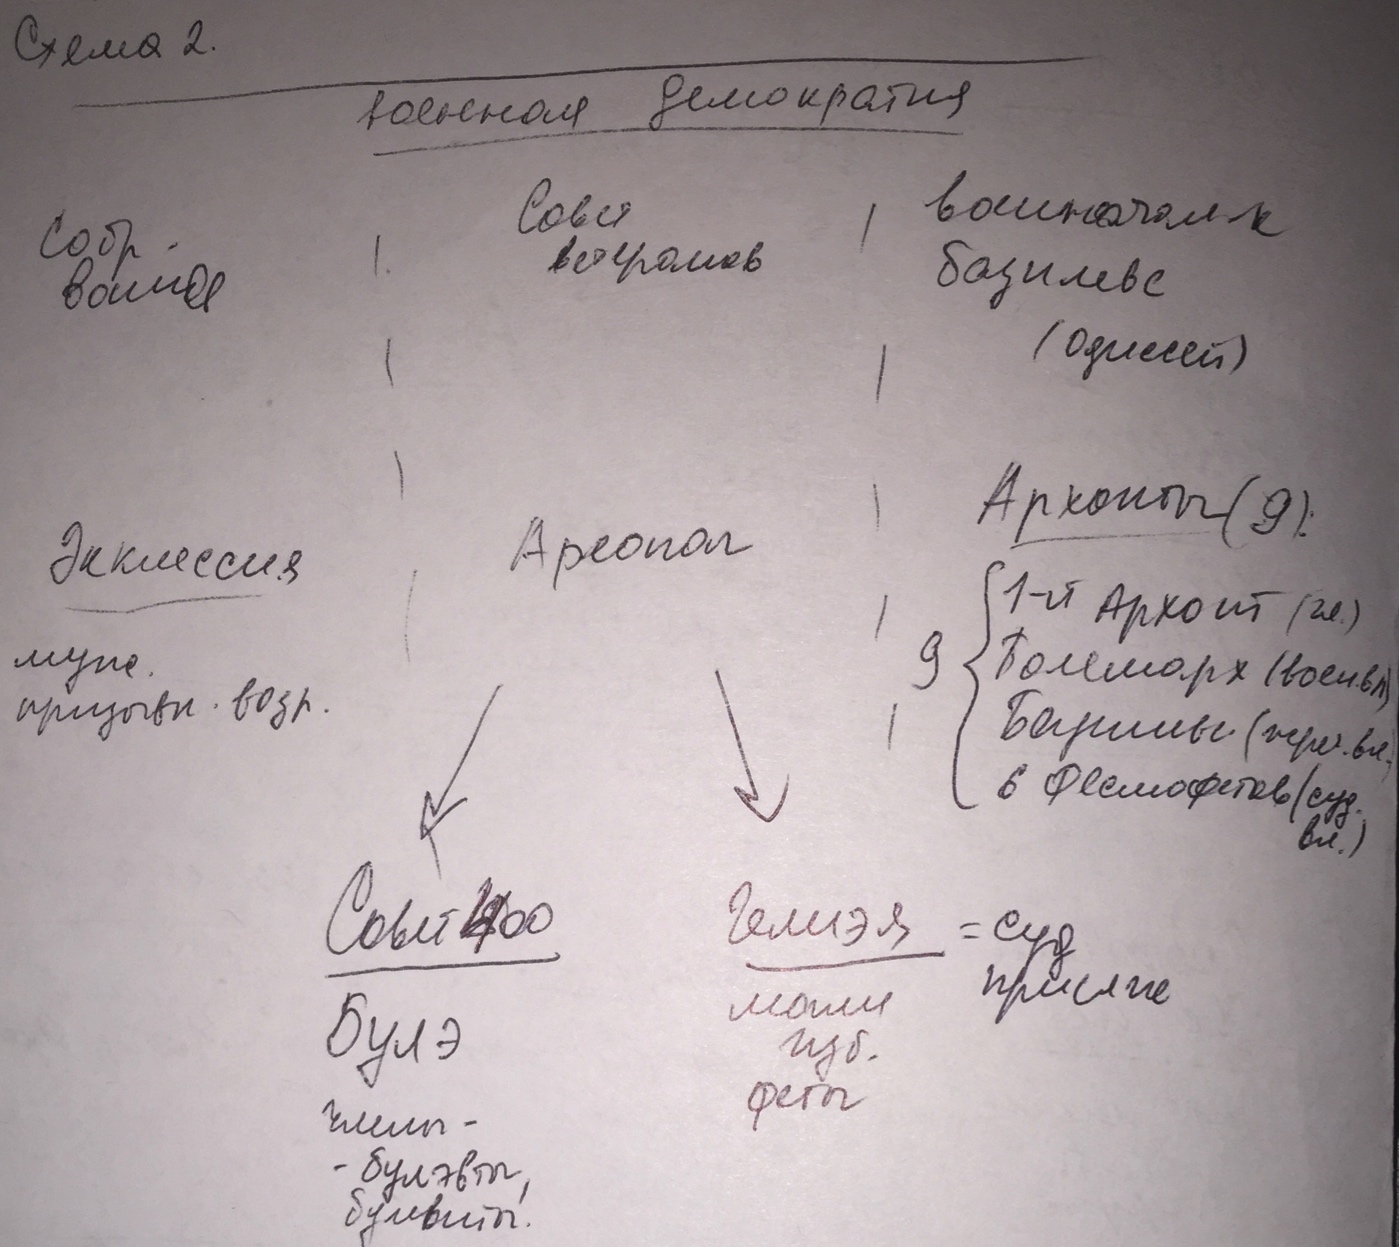 Схема 2.
Военная демократия
Собр.
воинов
Совет
ветеранов
военачальник
базилевс
(Одиссей)
Экклессия
мужс.
призывн. возр.
Ареопаг
Архонты (9):
9
1-й Архонт (гл.)
Полемарх (воен. вл.)
Базилевс (жреч. вл.)
6 Фесмофетов (суд.
вл.)
Совет 400
Булэ
члены -
- булэвты,
булевиты.
Гелиэя = суд
присяжс
могли
изб.
феты